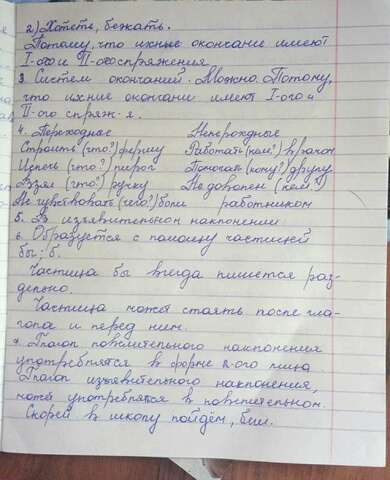 2) Хотеть, бежать.
Потому, что ихные окончание имеют
I-ого и II-ого спряжения
3. Систем окончаний. Можно. Потому,
что ихние окончани имеют I-ого и
II-ого спряж-я.
4. Переходное Непереходное
Строить (что?) ферму Работать (кем?) врачом
Испечь (что?) пирог Помогать (кому?) другу
Взял (что?) ручку Не доволен (кем?)
Не чувствовать (чего?) боли работником
5. В изъявительном наклонении
6. Образуется с помощу частицей
бы; б.
Частица бы всегда пишется раз-
дельно.
Частица может стоять после гла-
гола и перед ним.
7. Глагол повелительного наклонения
употребляется в форме 2-ого лица
Глагол изъявительного наклонения,
может употреблятся в повелительном.
Скорей в школу пойдём,